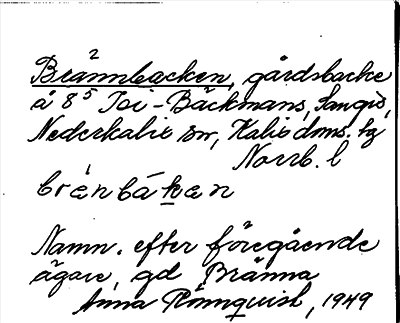 Brännbacken, gårdsbacke
å 8⁵ Isi-Bäckmans, Sangis,
Nederkalix sn, Kalix doms. tg
Norrb. l
brénbákæn
Namn. efter föregående
ägare, gd Bränna
Anna Rönnquist, 1949